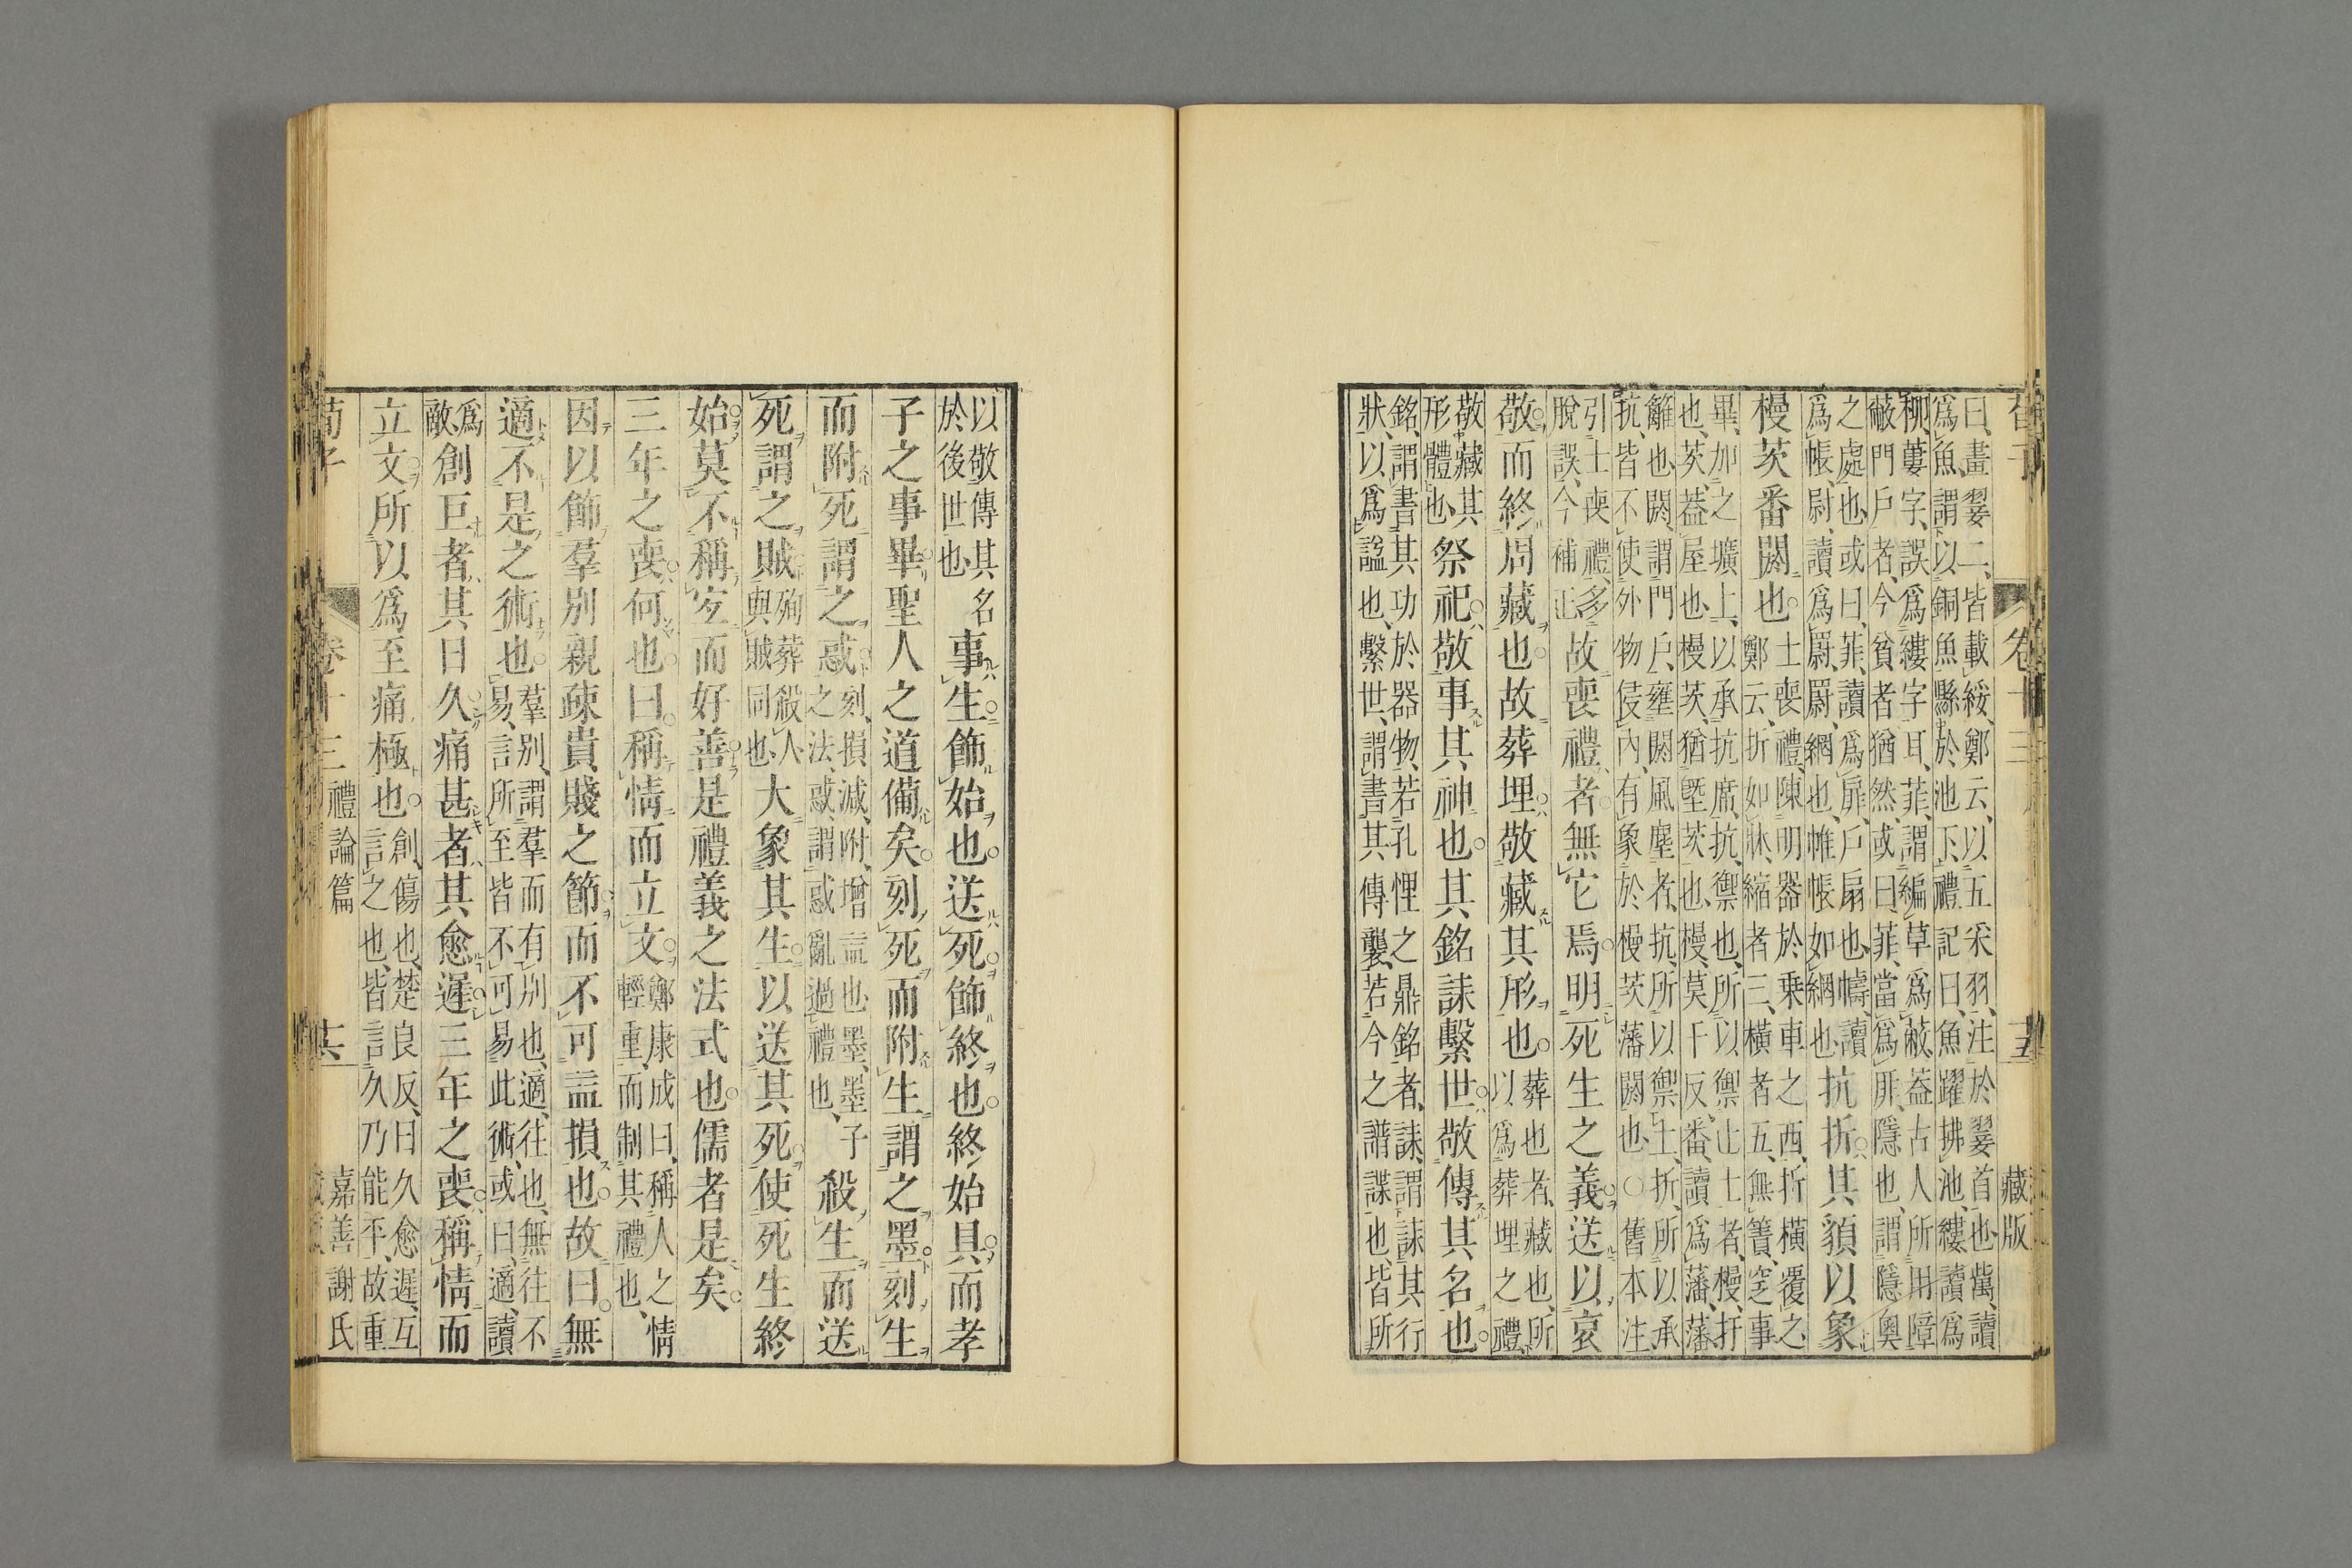 曰、畫翣二、皆載綏、鄭云、以五采羽、注於翣首也、萬、讀
爲魚、謂以銅魚縣於池下、禮記曰、魚躍拂池、縷讀爲
柳、蔞字、誤爲縷字耳、菲、謂編草爲蔽、葢古人所用障
蔽門戶者、今貧者猶然、或曰、菲、當爲厞、隱也、謂隱奧
之處也、或曰、菲、讀爲扉、戶扇也、幬、讀
爲帳、尉、讀爲罻、罻、網也、帷帳如網也
抗折其䫉以象
槾茨番閼也
士喪禮、陳明器於乗車之西、折橫覆之
鄭云、折如牀、縮者三、橫者五、無簀、窆事
畢、加之壙上、以承抗席、抗、禦也、所以禦止土者、槾、扜
也、茨、葢屋也、槾茨、猶塈茨也、槾、莫干反、番、讀爲藩、藩
籬也、閼、謂門戶、壅閼風塵者、抗、所以禦土、折、所以承
抗、皆不使外物侵內、有象於槾茨藩閼也、○舊本注
引士喪禮、多
脫誤、今補正
故喪禮者無它焉明死生之義送以哀
敬而終周藏也故葬埋敬藏其形也
葬也者、藏也、所
以爲葬埋之禮、
敬藏其
形體也
祭祀敬事其神也其銘誄繫世敬傳其名也
銘、謂書其功於器物、若孔悝之鼎銘者、誄、謂誄其行
狀、以爲諡也、繫世、謂書其傳襲、若今之譜諜也、皆所
藏版
以敬傳其名
於後世也
事生飾始也送死飾終也終始具而孝
子之事畢聖人之道備矣刻死而附生謂之墨刻生
而附死謂之惑
刻、損減、附、增益也、墨、墨子
之法、惑、謂惑亂過禮也、
殺生而送
死謂之賊
殉葬殺人
與賊同也、
大象其生以送其死使死生終
始莫不稱宜而好善是禮義之法式也儒者是矣
三年之喪何也曰稱情而立文
鄭康成曰、稱人之情
輕重、而制其禮也、
因以飾羣別親疎貴賤之節而不可益損也故曰無
適不是之術也
羣別、謂羣而有別也、適、往也、無往不
易、言所至皆不可易此術、或曰、適、讀
爲
敵
創巨者其日久痛甚者其愈遲三年之喪稱情而
立文所以爲至痛極也
創、傷也、楚良反、日久愈遲、互
言之也、皆言久乃能平、故重
荀子
卷十三
禮論篇
嘉善謝氏